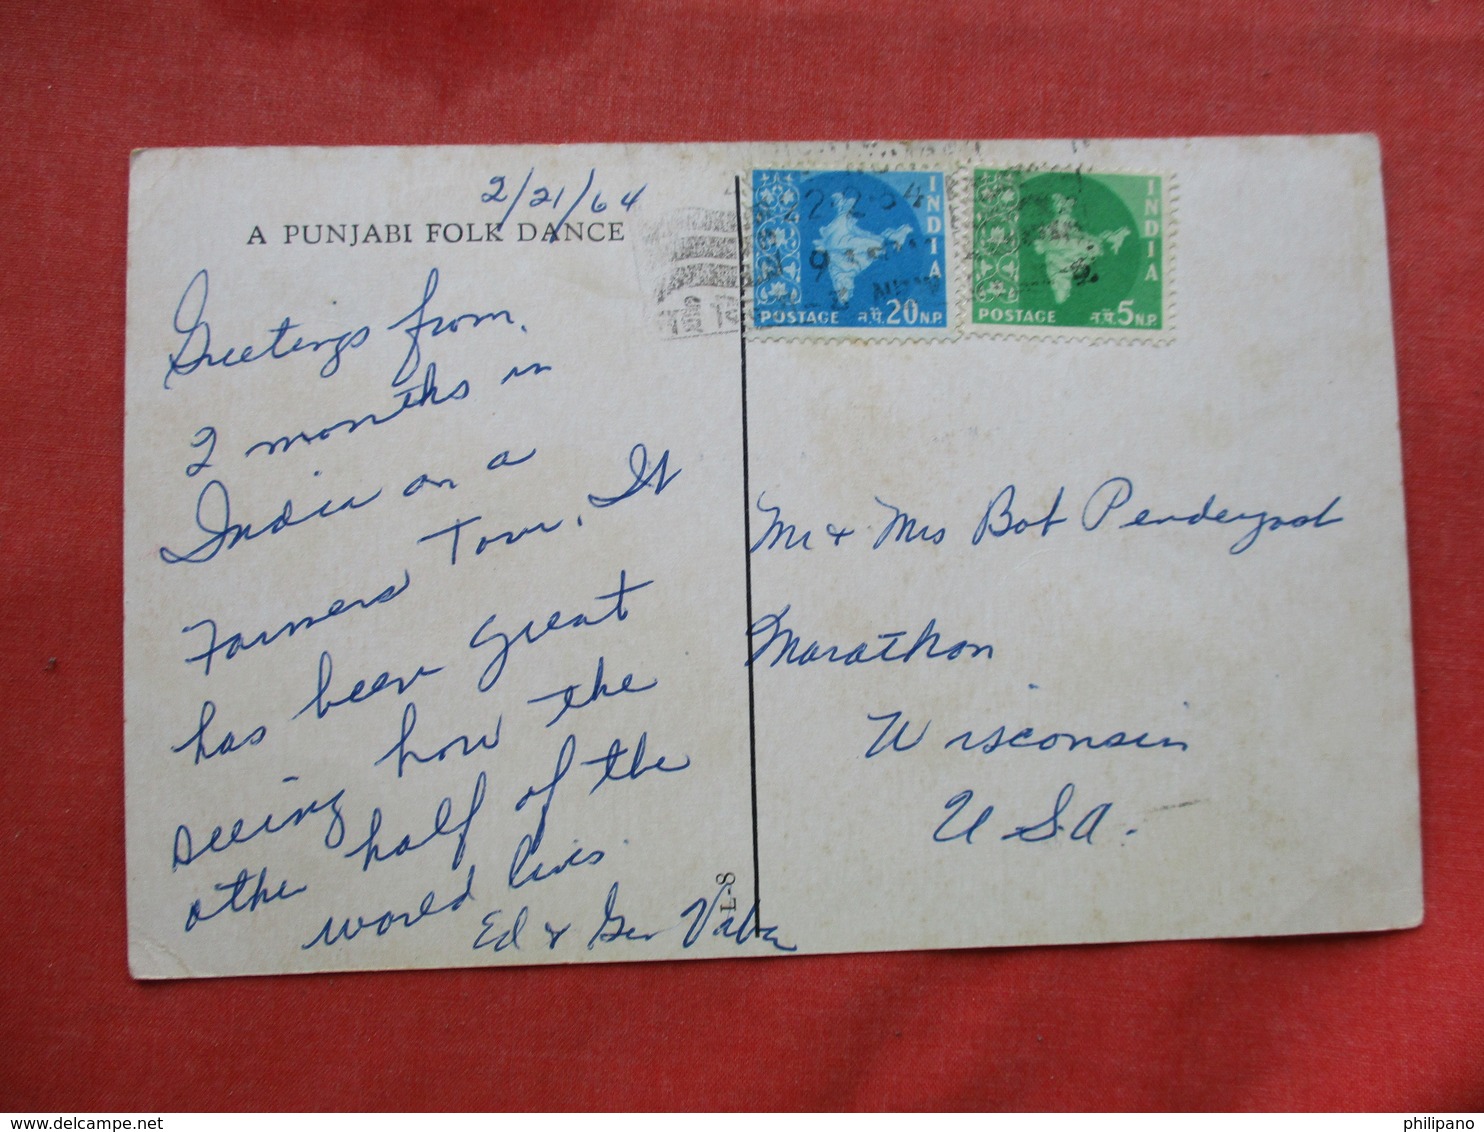 2/21/64
A PUNJABI FOLK DANCE
Greetings from,
2 months in
India on a
Farmers Tour, It
has been great
seeing how the
other half of the
world lives.
Ed & Gen
L-S
22·2·64
9
NEW
INDIA
POSTAGE न.पै.20 N.P.
INDIA
POSTAGE न.पै.5 N.P.
Mr & Mrs Bob Pendergast
Marathon
Wisconsin
U.S.A.
philipano